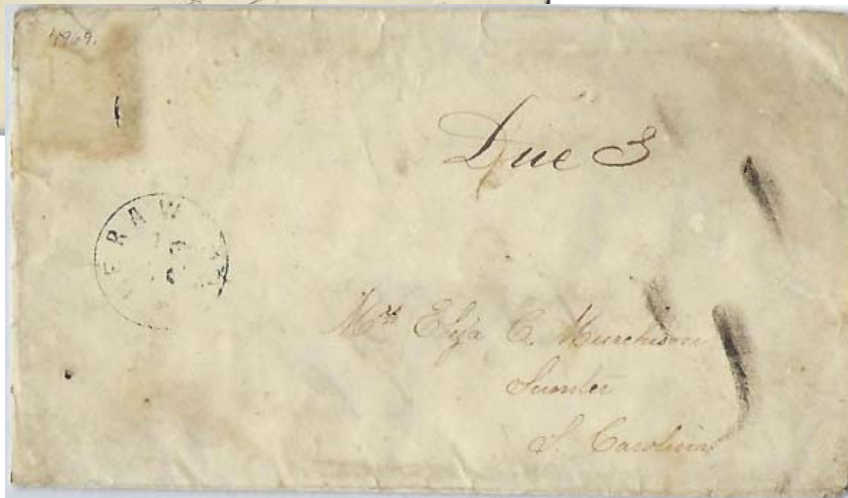 4969.
Due 3
ERAW
Mrs Eliza C. Murchison
Sumter
S. Carolina